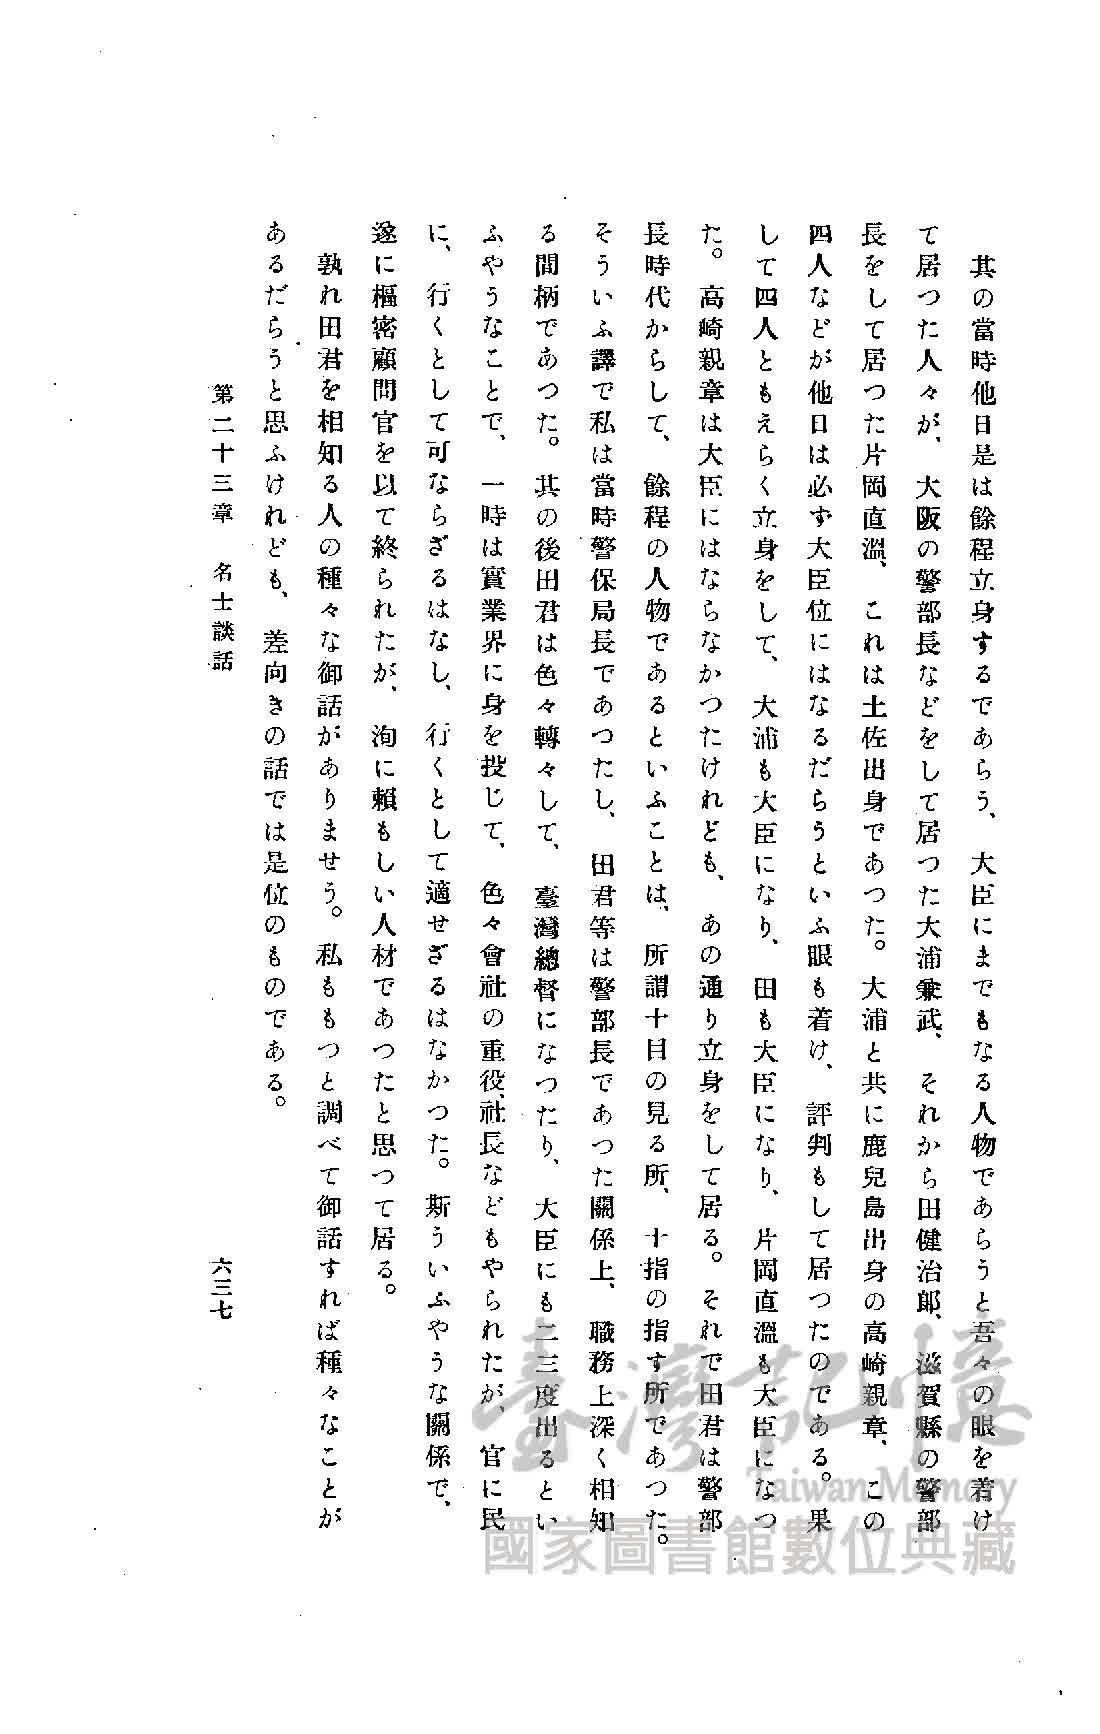 其の當時他日是は餘程立身するであらう、大臣にまでもなる人物であらうと吾々の眼を着け
て居つた人々が、大阪の警部長などをして居つた大浦兼武、それから田健治郎、滋賀縣の警部
長をして居つた片岡直溫、これは土佐出身であつた。大浦と共に鹿兒島出身の高崎親章、この
四人などが他日は必ず大臣位にはなるだらうといふ眼も着け、評判もして居つたのである。果
して四人ともえらく立身をして、大浦も大臣になり、田も大臣になり、片岡直溫も大臣になつ
た。高崎親章は大臣にはならなかつたけれども、あの通り立身をして居る。それで田君は警部
長時代からして、餘程の人物であるといふことは、所謂十目の見る所、十指の指す所であつた。
そういふ譯で私は當時警保局長であつたし、田君等は警部長であつた關係上、職務上深く相知
る間柄であつた。其の後田君は色々轉々して、臺灣總督になつたり、大臣にも二三度出るとい
ふやうなことで、一時は實業界に身を投じて、色々會社の重役、社長などもやられたが、官に民
に、行くとして可ならざるはなし、行くとして適せざるはなかつた。斯ういふやうな關係で、
遂に樞密顧問官を以て終られたが、洵に賴もしい人材であつたと思つて居る。
孰れ田君を相知る人の種々な御話がありませう。私ももつと調べて御話すれば種々なことが
あるだらうと思ふけれども、差向きの話では是位のものである。
第二十三章　名士談話
六三七
臺灣記憶
Taiwan Memory
國家圖書館數位典藏